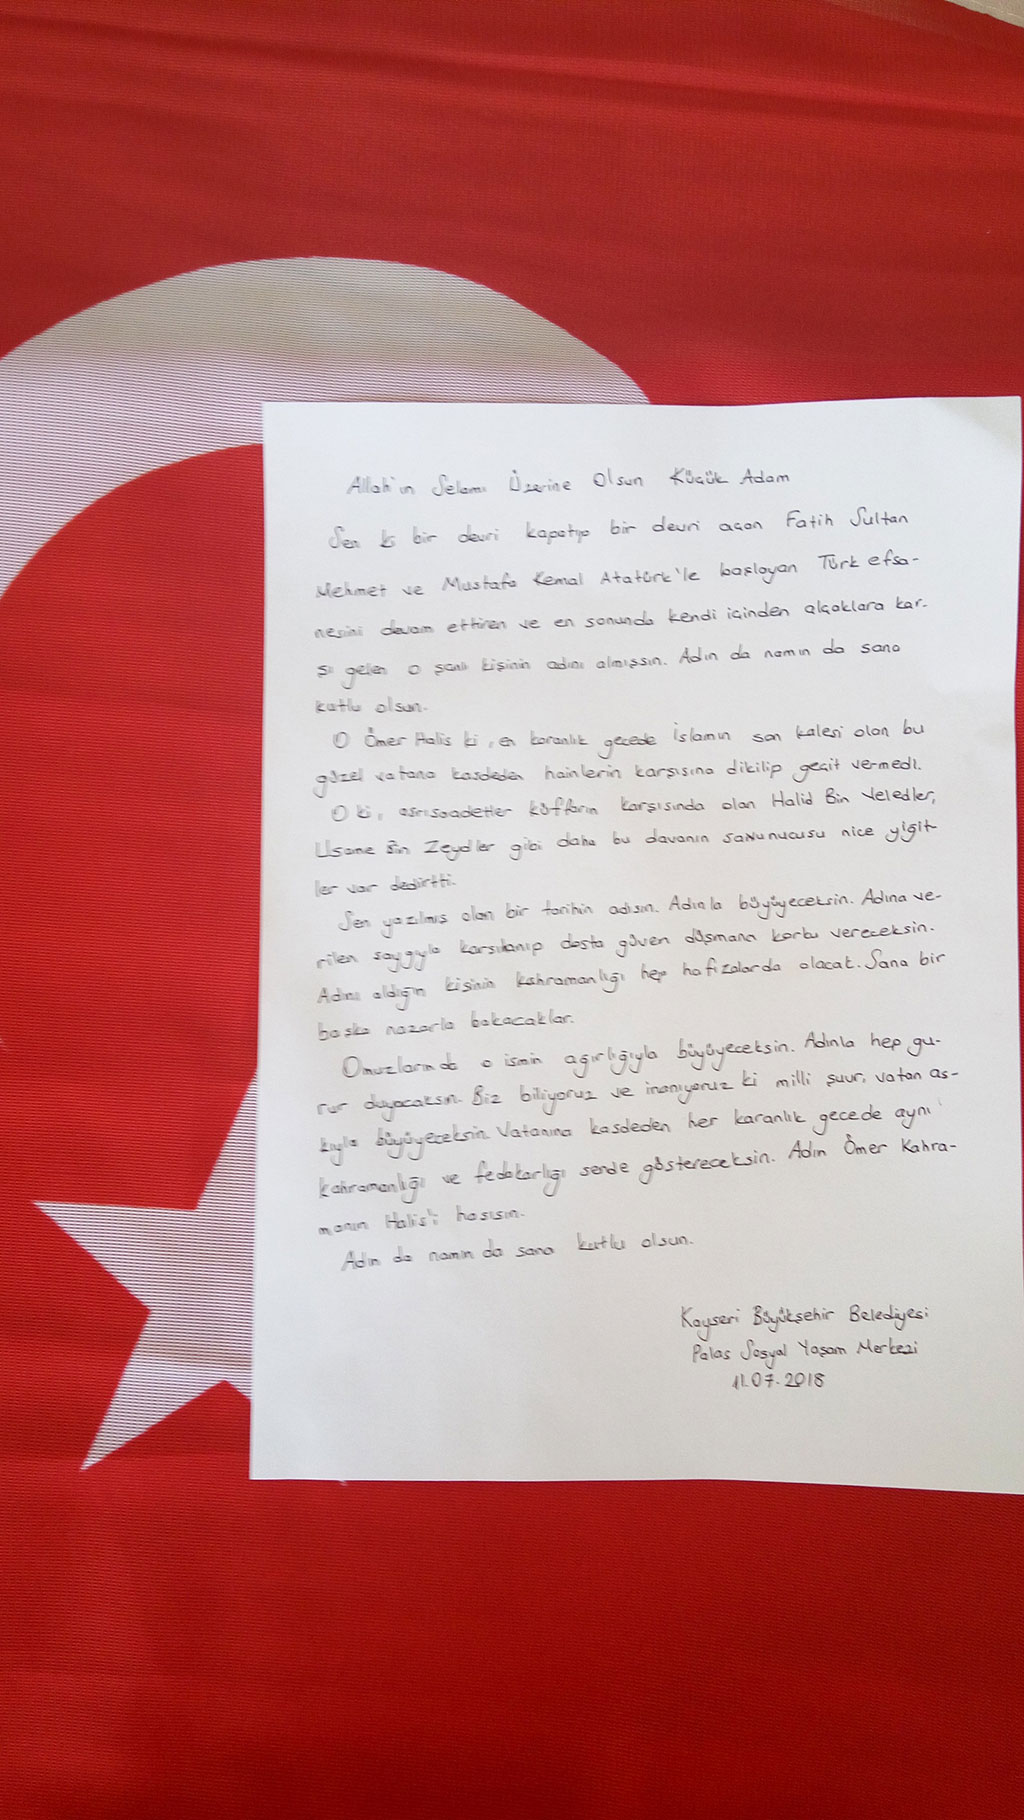 Allah'ın Selamı Üzerine Olsun Küçük Adam
Sen ki bir devri kapatıp bir devri açan Fatih Sultan
Mehmet ve Mustafa Kemal Atatürk'le başlayan Türk efsa-
nesini devam ettiren ve en sonunda kendi içinden alçaklara kar-
şı gelen o şanlı kişinin adını almışsın. Adın da namın da sana
kutlu olsun.
O Ömer Halis ki, en karanlık gecede İslamın son kalesi olan bu
güzel vatana kasdeden hainlerin karşısına dikilip geçit vermedi.
O ki, asrısaadetler küffarın karşısında olan Halid Bin Veledler,
Usame Bin Zeydler gibi daha bu davanın savunucusu nice yiğit-
ler var dedirtti.
Sen yazılmış olan bir tarihin adısın. Adınla büyüyeceksin. Adına ve-
rilen saygıyla karşılanıp dosta güven düşmana korku vereceksin.
Adını aldığın kişinin kahramanlığı hep hafızalarda olacak. Sana bir
başka nazarla bakacaklar.
Omuzlarında o ismin ağırlığıyla büyüyeceksin. Adınla hep gu-
rur duyacaksın. Biz biliyoruz ve inanıyoruz ki milli şuur, vatan aş-
kıyla büyüyeceksin. Vatanına kasdeden her karanlık gecede aynı
kahramanlığı ve fedakarlığı sende göstereceksin. Adın Ömer Kahra-
manın Halis'i hasısın.
Adın da namın da sana kutlu olsun.
Kayseri Büyükşehir Belediyesi
Palas Sosyal Yaşam Merkezi
11.07.2018